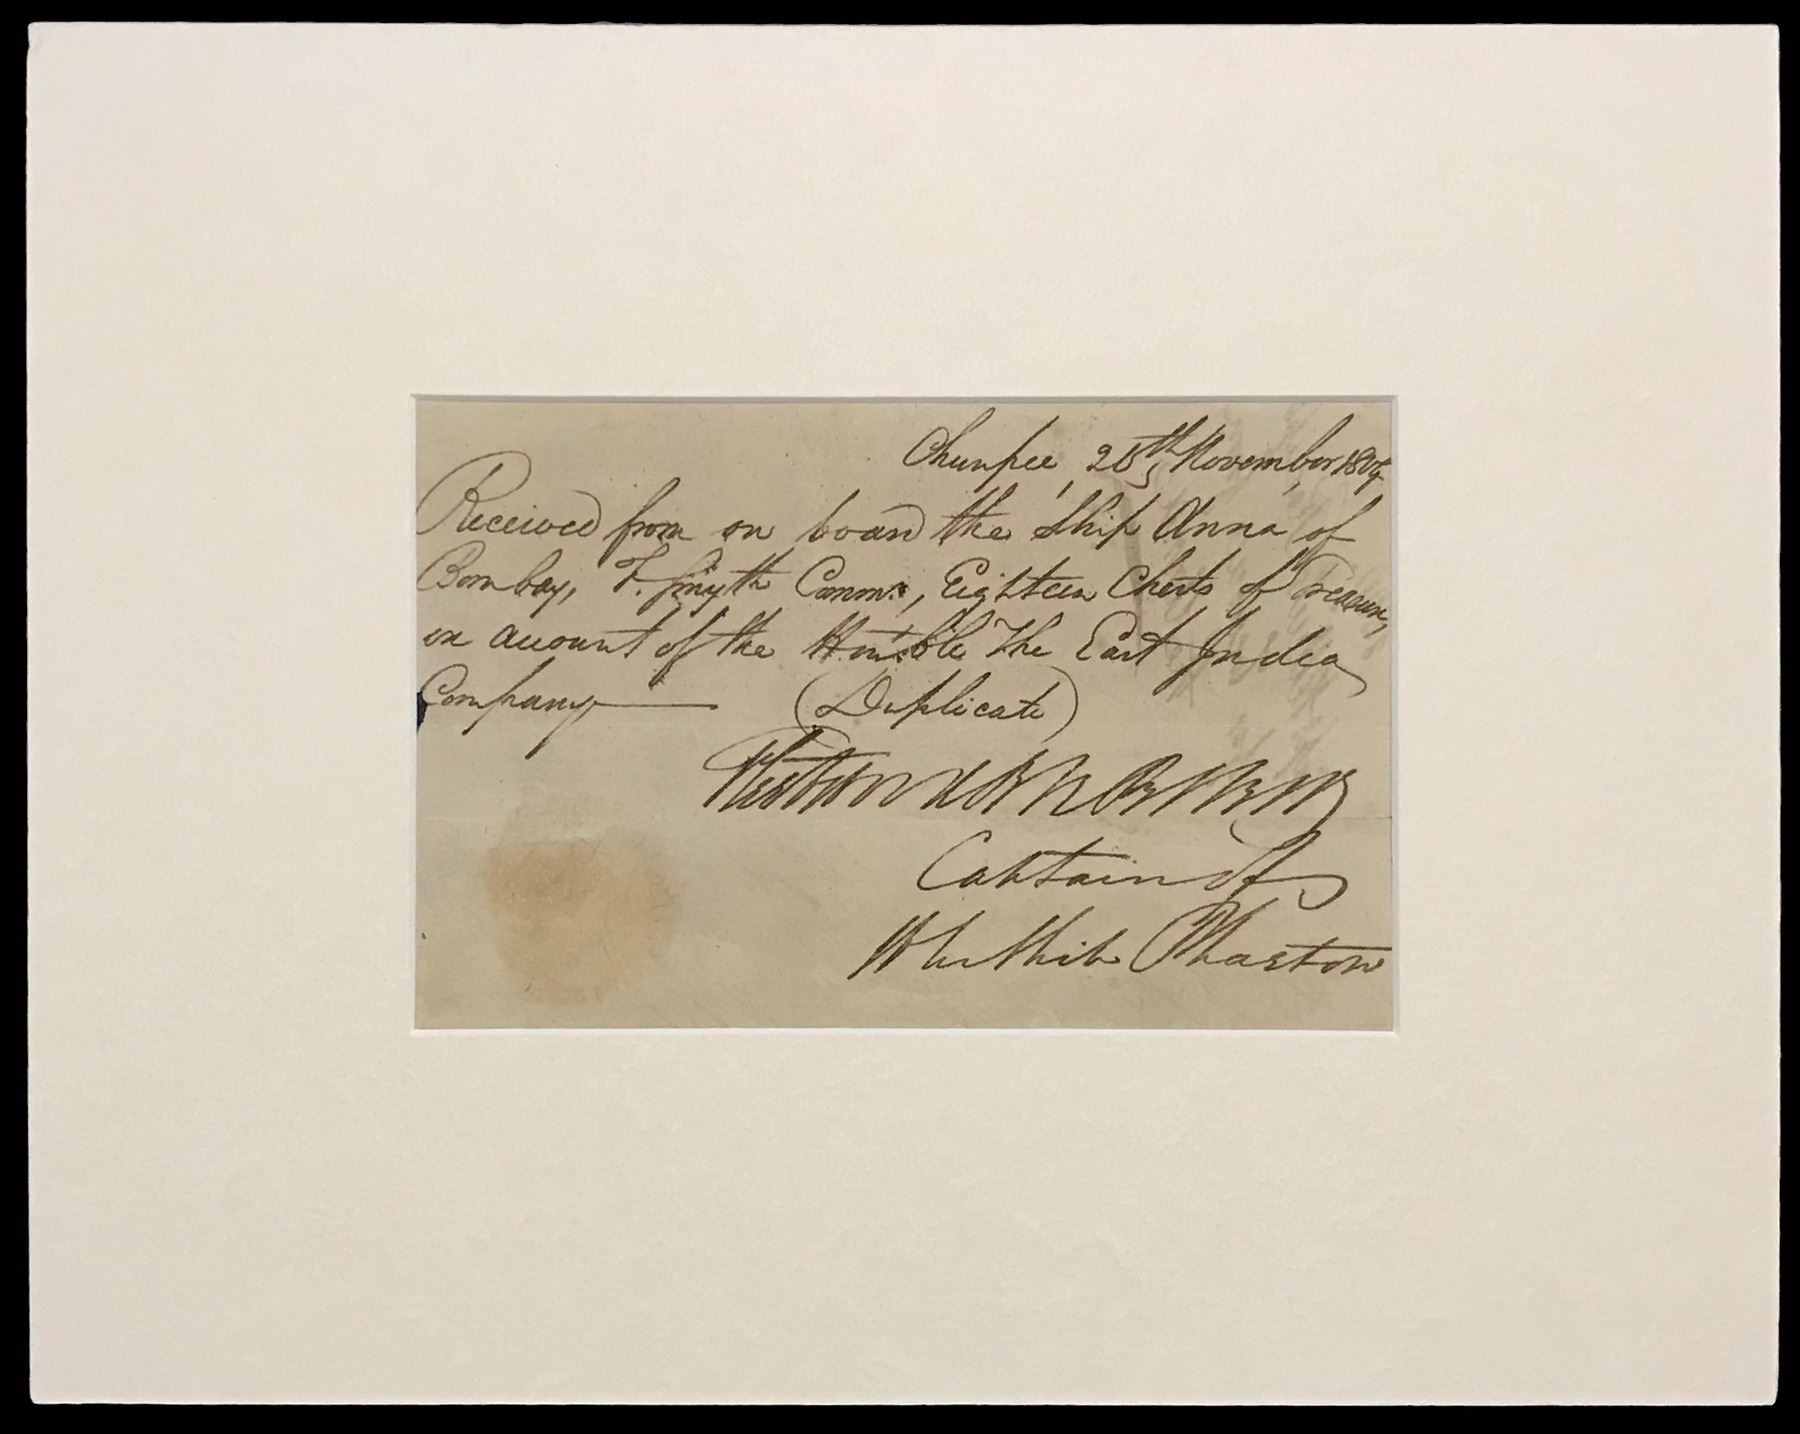 Chunpee, 25th November 180
Received from on board the Ship Anna of
Bombay, F. Smyth Comm:, Eighteen Chests of Treasure,
on account of the Hon:ble The East India
Company (Duplicate)
Captain of
the Ship